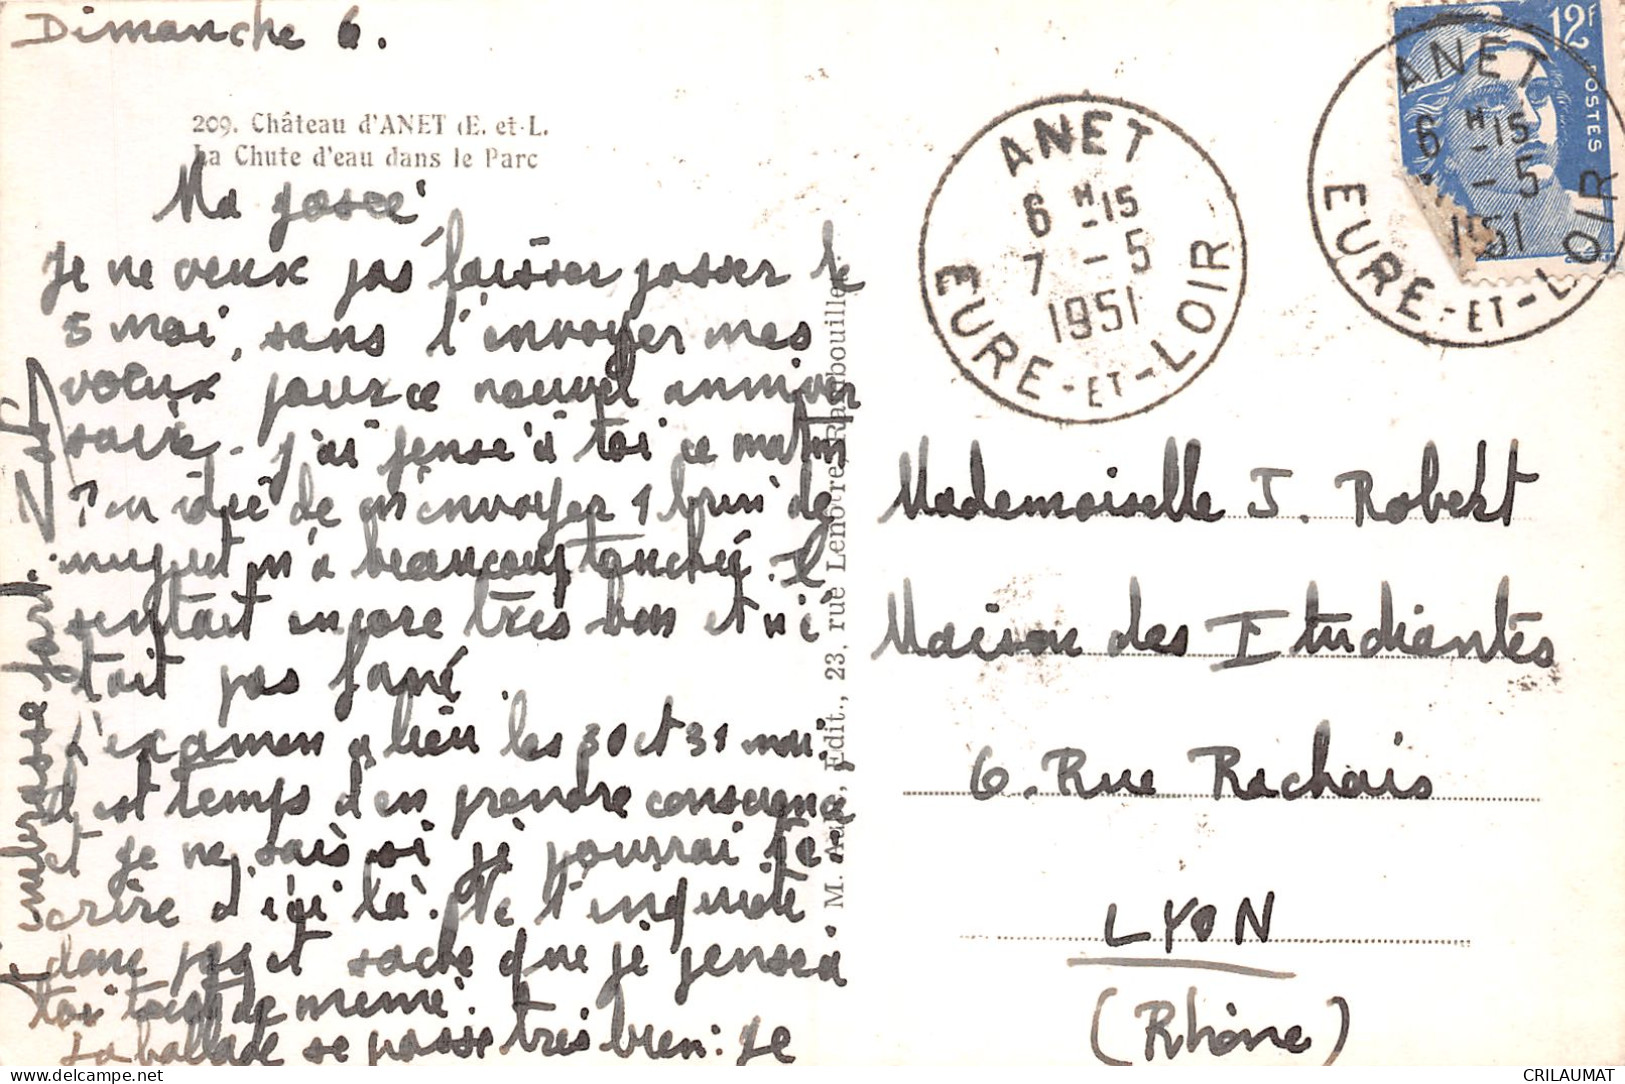 Dimanche 6.
209. Château d'ANET (E. et-L.
La Chute d'eau dans le Parc
Ma
Je ne veux pas laisser passer le
5 mai, sans t'envoyer mes
voeux pour ce nouvel anniver
saire - j'ai pensé à toi ce matin
idée de m'envoyer 1 brin de
muguet m'a beaucoup touchée. Il
sentait encore très bon et n'é
tait pas fané.
L'examen a lieu les 30 et 31 mai.
il est temps d'en prendre conscience
et je ne sais si je pourrai t'é-
crire d'ici là. Ne t'inquiète
donc pas et sache que je pense à
toi tout de même.
La ballade se passe très bien: je
t'embrasse fort.
M. Edit., 23, rue Lenôtre, Rambouillet
ANET
6 H 15
7 - 5
1951
EURE-ET-LOIR
12F
POSTES
ANET
6 H 15
- 5
1951
EURE-ET-LOIR
Mademoiselle J. Robert
Maison des Etudiantes
6. Rue Rachais
LYON
(Rhône)
CRILAUMAT